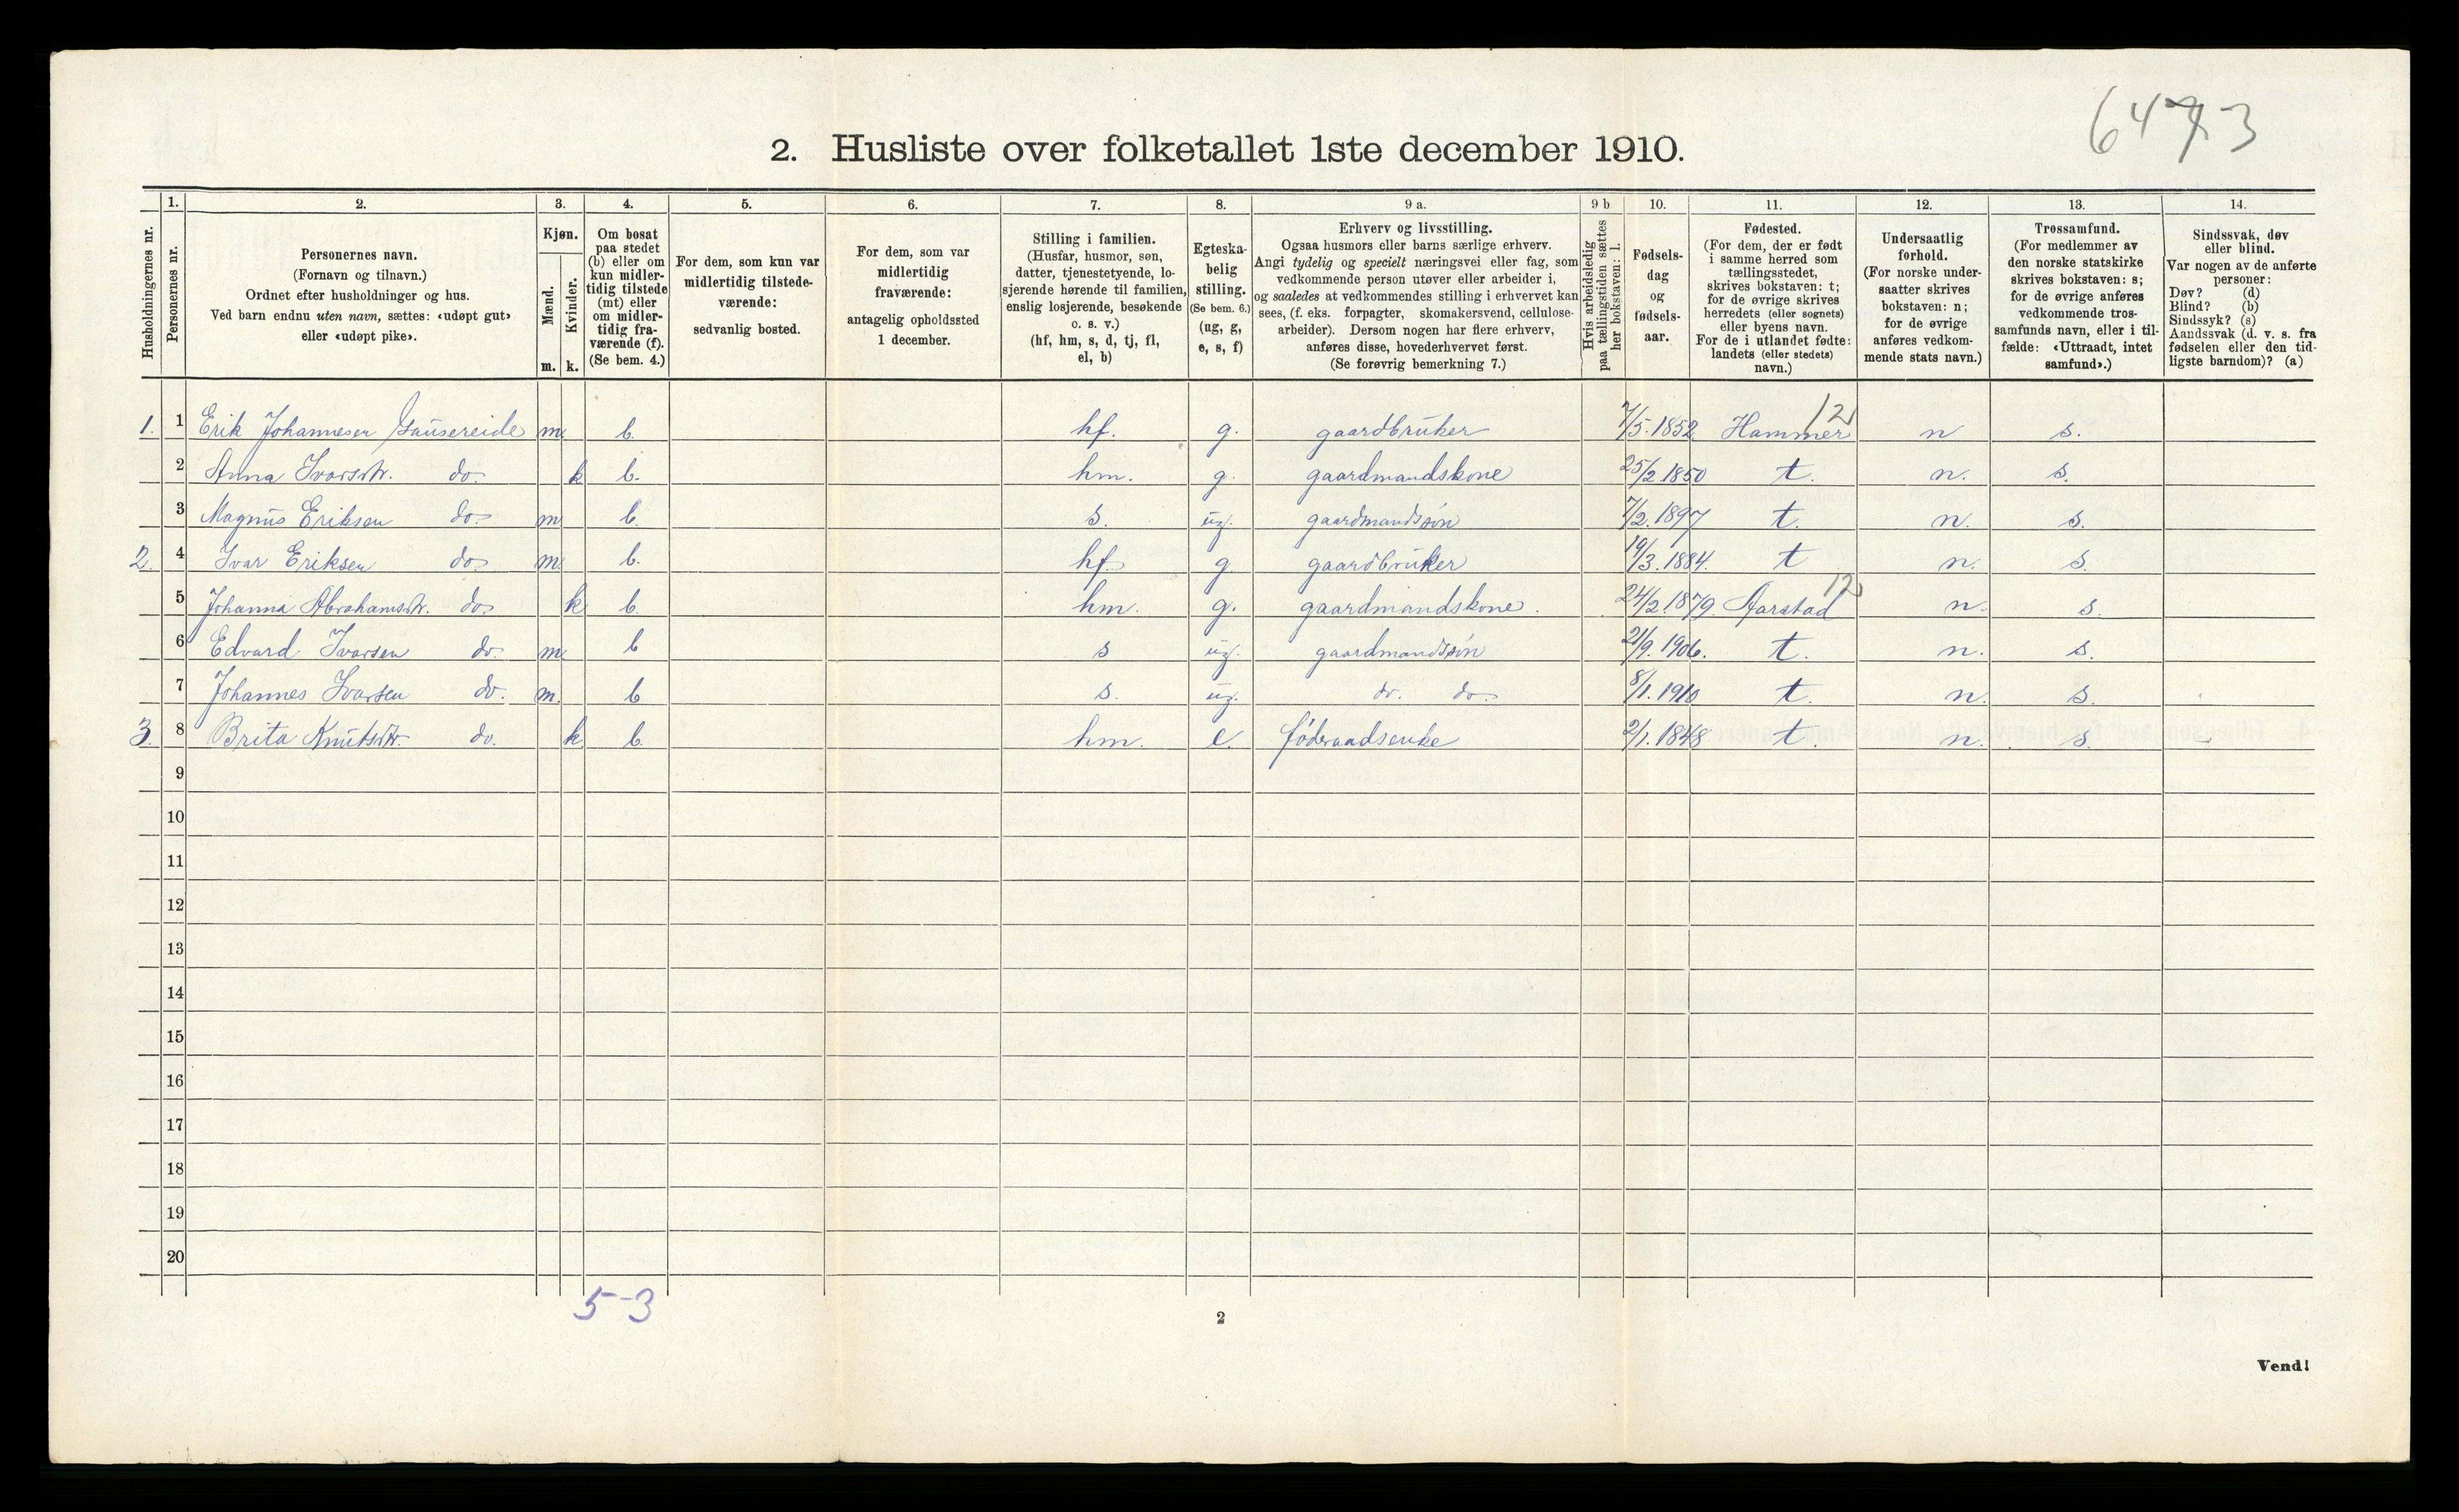 6473
2. Husliste over folketallet 1ste december 1910.
Husholdningernes nr.
1. Personernes nr.
2. Personernes navn. (Fornavn og tilnavn.) Ordnet efter husholdninger og hus. Ved barn endnu uten navn, sættes: «udøpt gut» eller «udøpt pike».
3. Kjøn. Mænd. m. Kvinder. k.
4. Om bosat paa stedet (b) eller om kun midlertidig tilstede (mt) eller om midlertidig fraværende (f). (Se bem. 4.)
5. For dem, som kun var midlertidig tilstedeværende: sedvanlig bosted.
6. For dem, som var midlertidig fraværende: antagelig opholdssted 1 december.
7. Stilling i familien. (Husfar, husmor, søn, datter, tjenestetyende, losjerende hørende til familien, enslig losjerende, besøkende o. s. v.) (hf, hm, s, d, tj, fl, el, b)
8. Egteskabelig stilling. (Se bem. 6.) (ug, g, e, s, f)
9 a. Erhverv og livsstilling. Ogsaa husmors eller barns særlige erhverv. Angi tydelig og specielt næringsvei eller fag, som vedkommende person utøver eller arbeider i, og saaledes at vedkommendes stilling i erhvervet kan sees, (f. eks. forpagter, skomakersvend, cellulosearbeider). Dersom nogen har flere erhverv, anføres disse, hovederhvervet først. (Se forøvrig bemerkning 7.)
9 b Hvis arbeidsledig paa tællingstiden sættes her bokstaven: l.
10. Fødselsdag og fødselsaar.
11. Fødested. (For dem, der er født i samme herred som tællingsstedet, skrives bokstaven: t; for de øvrige skrives herredets (eller sognets) eller byens navn. For de i utlandet fødte: landets (eller stedets) navn.)
12. Undersaatlig forhold. (For norske undersaatter skrives bokstaven: n; for de øvrige anføres vedkommende stats navn.)
13. Trossamfund. (For medlemmer av den norske statskirke skrives bokstaven: s; for de øvrige anføres vedkommende trossamfunds navn, eller i tilfælde: «Uttraadt, intet samfund».)
14. Sindssvak, døv eller blind. Var nogen av de anførte personer: Døv? (d) Blind? (b) Sindssyk? (s) Aandssvak (d. v. s. fra fødselen eller den tidligste barndom)? (a)
1. 1 Erik Johannesen Gausereide m b. hf. g. gaardbruker 7/5.1852 Hammer 12 n s.
2 Anna Ivarsdtr. do. k b. hm. g. gaardmandskone 25/2 1850 t. n. s.
3 Magnus Eriksen do. m b. s. ug. gaardmandssøn 7/2.1897 t. n. s.
2. 4 Ivar Eriksen do m b. hf. g. gaardbruker 19/3.1884. t n. s.
5 Johanna Abrahamsdtr. do k b. hm. g. gaardmandskone. 24/2.1879. Aarstad 12 n. s.
6 Edvard Ivarsen do. m b s ug. gaardmandssøn 21/9.1906. t. n. s.
7 Johannes Ivarsen do. m. b s. ug. do. do. 8/1.1910 t. n. s.
3. 8 Brita Knutsdtr. do. k b. hm. e. føderaadsenke 2/1.1848 t. n. s.
9
10
11
12
13
14
15
16
17
18
19
20
5-3
2
Vend!